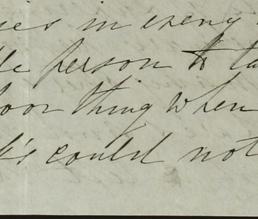 ies in every
le person to ta
poor thing when
k's could not